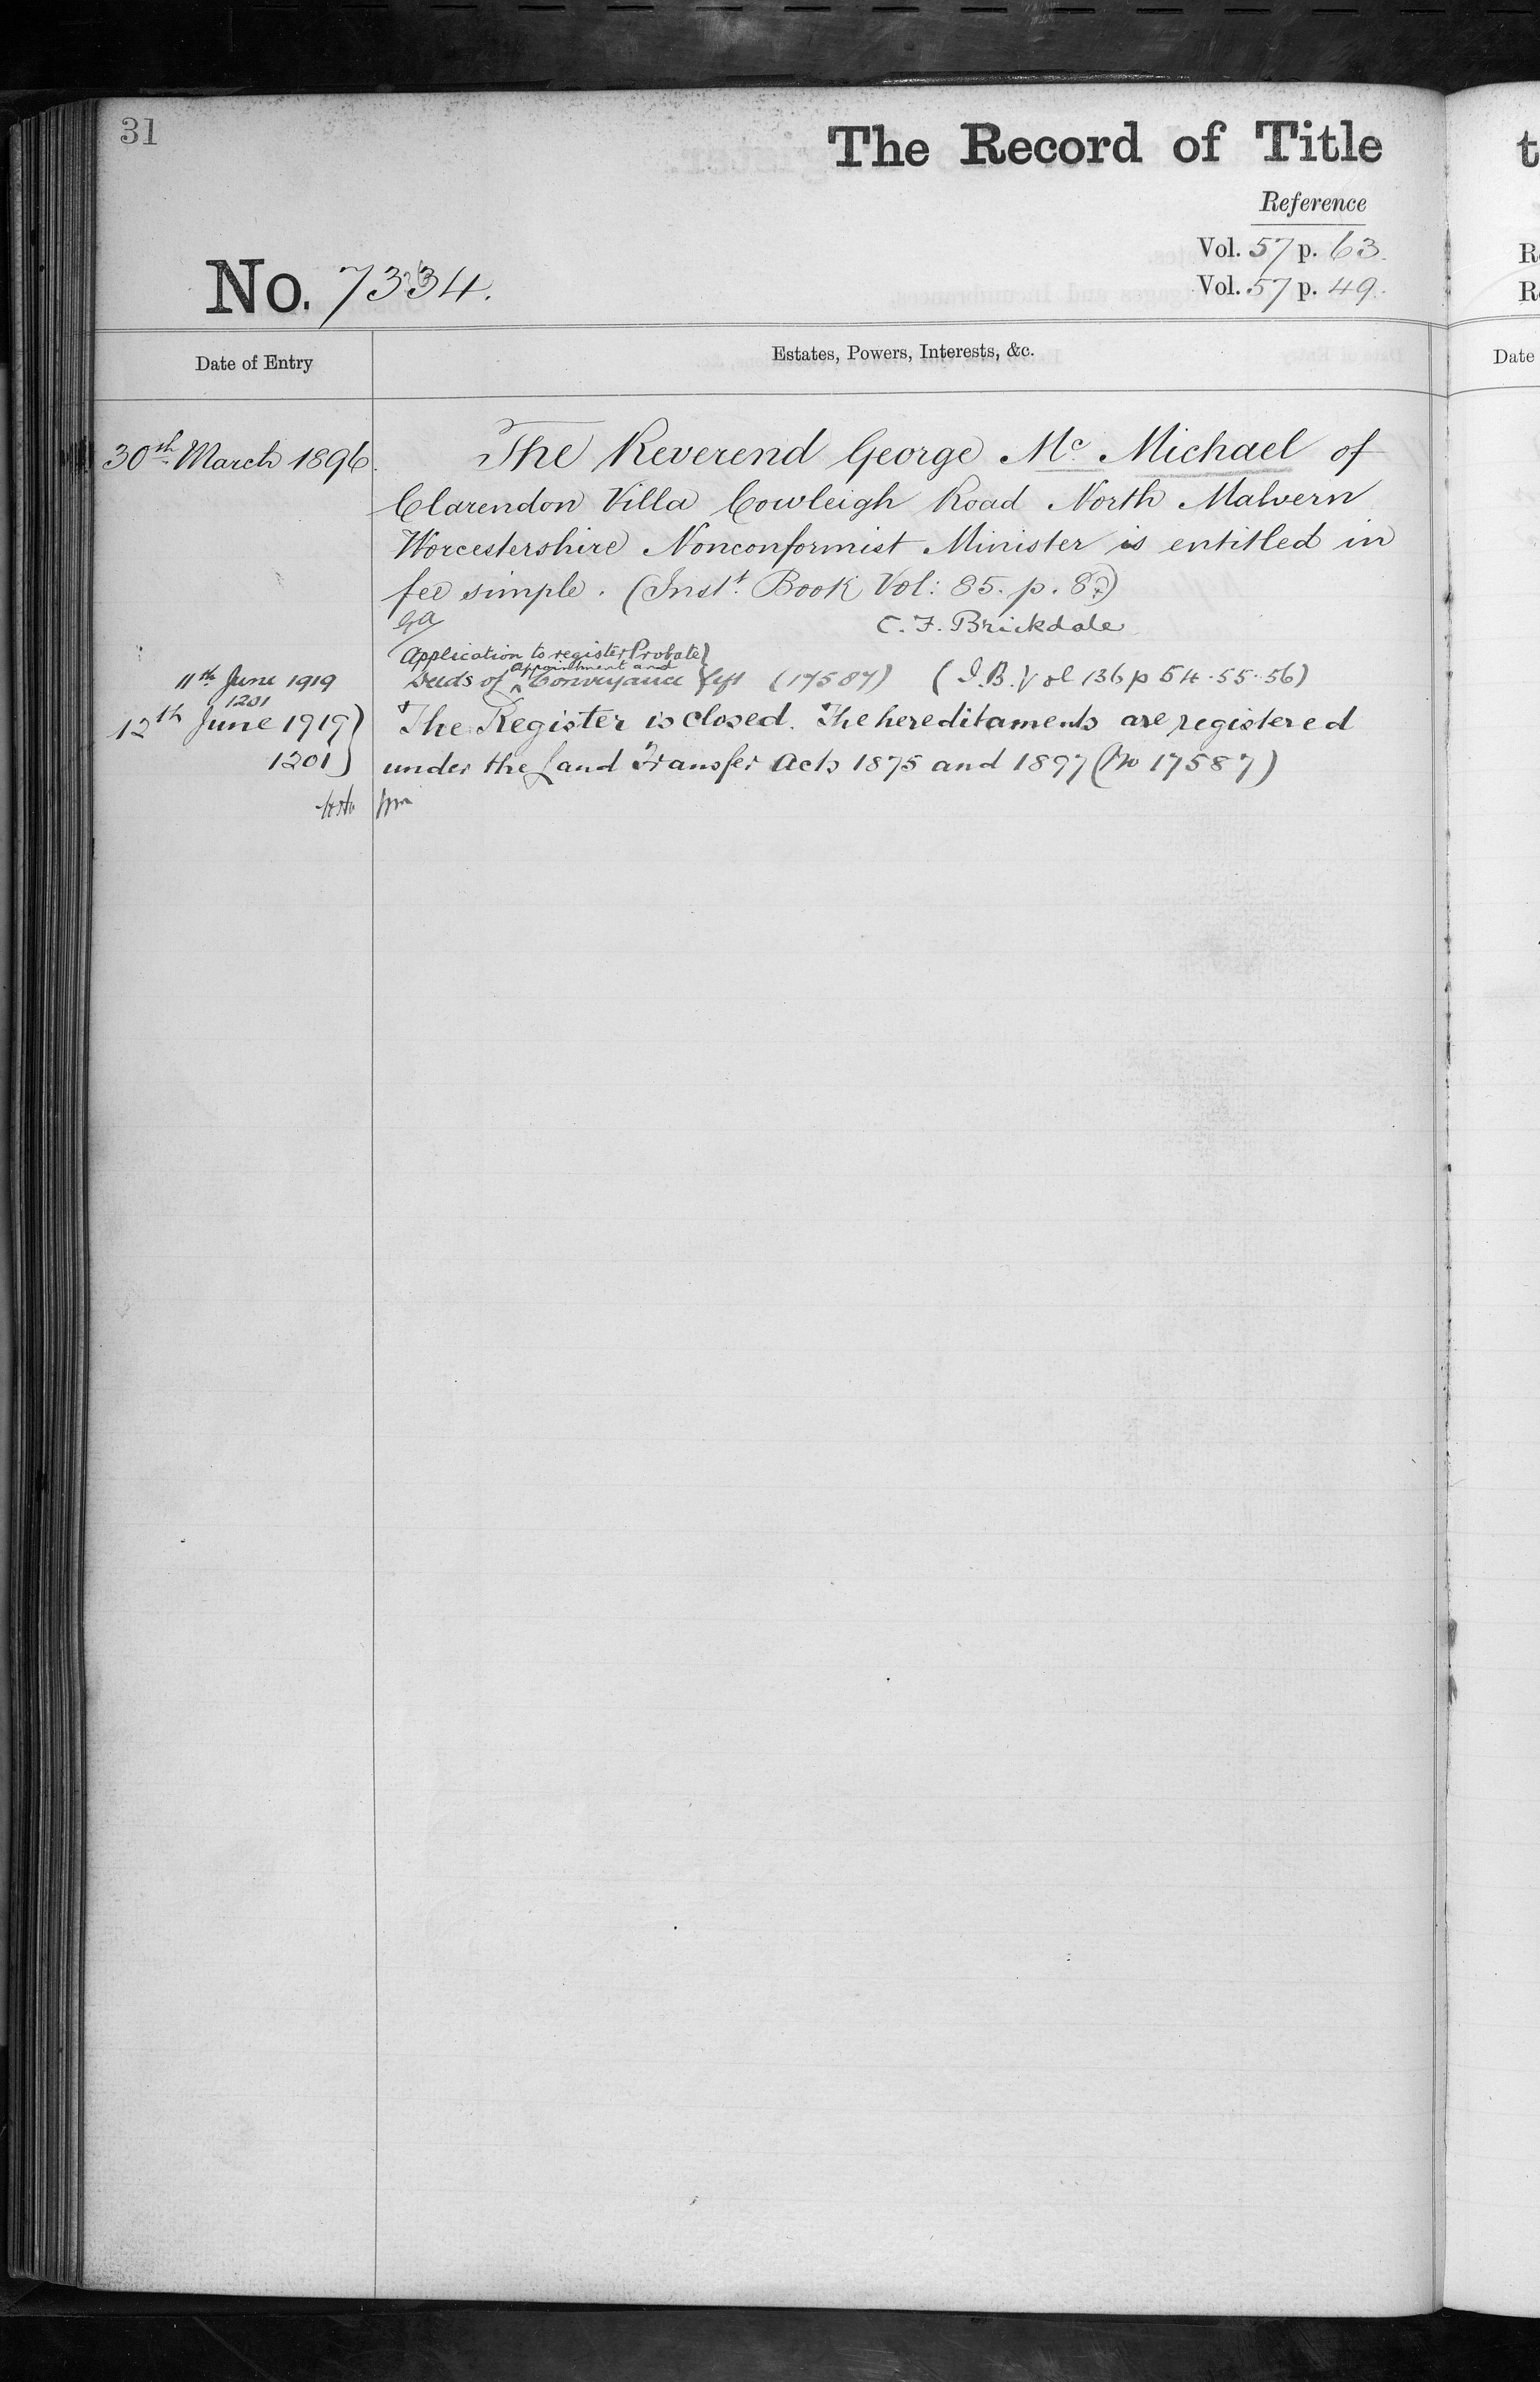 31
The Record of Title
Reference
Vol. 57 p. 63.
No. 7334.
Vol. 57 p. 49.
Date of Entry
Estates, Powers, Interests, &c.
30th March 1896.
The Reverend George Mc Michael of
Clarendon Villa Cowleigh Road North Malvern
Worcestershire Nonconformist Minister is entitled in
fee simple. (Inst. Book Vol: 85. p. 87)
C. F. Brickdale
Application to register Probate
appointment and
11th June 1919
Deeds of Conveyance left (17587) (I.B. Vol 136 p 54.55.56)
1201
12th June 1919
The Register is closed. The hereditaments are registered
1201
under the Land Transfer Acts 1875 and 1897 (No 17587)
t
R
R
Date